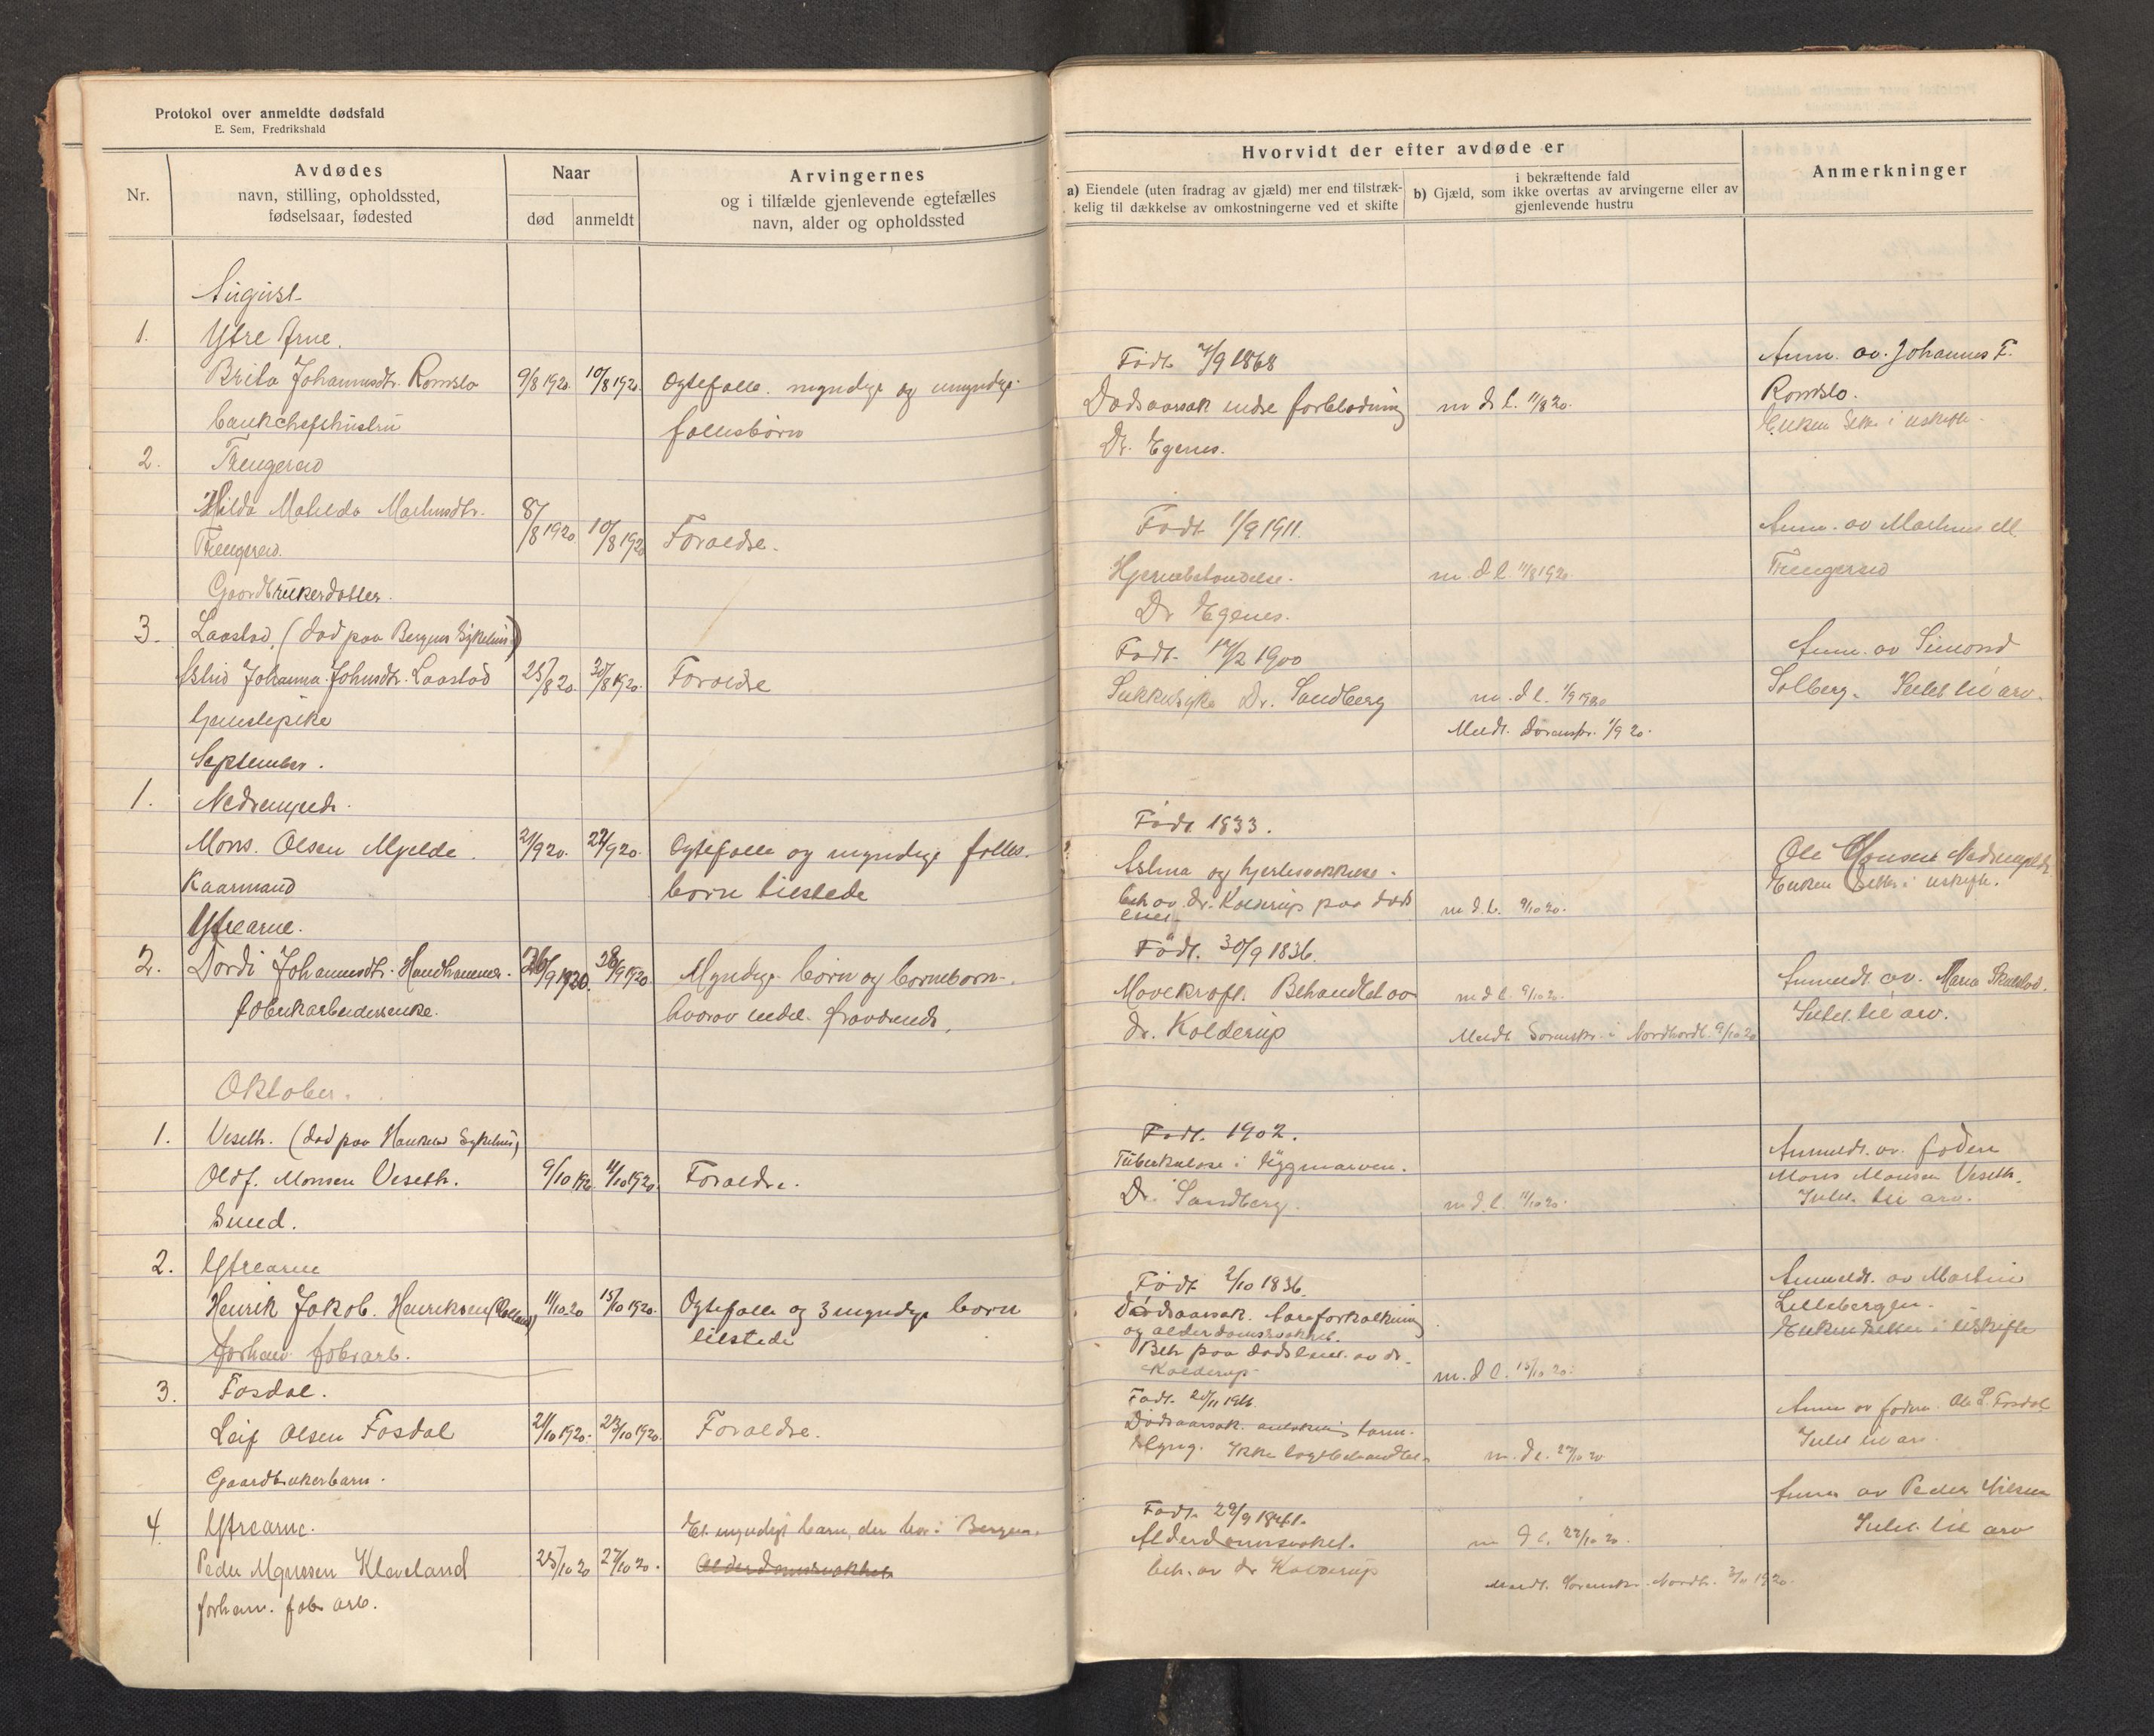 Protokol over anmeldte dødsfald
E. Sem, Fredrikshald
Nr.
Avdødes
navn, stilling, opholdssted,
fødselsaar, fødested
Naar
død
anmeldt
Arvingernes
og i tilfælde gjenlevende egtefælles
navn, alder og opholdssted
Hvorvidt der efter avdøde er
a) Eiendele (uten fradrag av gjæld) mer end tilstræk-
kelig til dækkelse av omkostningerne ved et skifte
i bekræftende fald
b) Gjæld, som ikke overtas av arvingerne eller av
gjenlevende hustru
Anmerkninger
August
1. Ytre Arne.
Brita Johannesdtr. Romslo 9/8 1920. 10/8 1920. Ogtefolle. myndige og umyndige
bankchefshustru
follesborn
Født 7/9 1868
Dødsaarsak indre forblødning m d l. 11/8 20.
Dr. Egenes.
Anm. av. Johannes F.
Romslo.
Enken Sitter i uskifte.
2. Trengereid
Hilda Matilda Martinsdtr.
Trengereid. 8/8 1920 10/8 1920 Foreldre.
Gaardbrukerdatter.
Født 1/9 1911.
Hjernebetendelse. m. d l. 11/8 1920.
Dr Egenes.
Anm. av Martinus M.
Trengereid
3. Laastad, (død paa Bergens Sykehus)
Astrid Johanna Johnsdtr. Laastad 25/8 20. 30/8 1920. Foreldre
Tjenestepike
Født. 12/2 1900
Sukkersyke Dr. Sandberg m. d l. 1/9 1920
Meldt. Sorenskr. 1/9 20.
Anm. av Simond
Solberg. Intet til arv.
September.
1. Nedremjelde.
Mons. Olsen Mjelde. 21/9 20. 22/9 20. Ogtefolle og myndige folles.
Kaarmand
born tilstede
Født 1833.
Astma og hjertesvakkelse.
beh av. Dr. Kolderup paa døds
leiet. m d. l. 9/10 20.
Ole Monsen Nedremjelde
Enken Sitter i uskifte.
Ytrearne.
2. Dordi Johannesdtr. Haudhammer. 26/9 1920. 28/9 1920. Myndige born og borneborn.
fabrikarbeidersenke.
hvorav endel fravarende.
Født. 30/9 1836.
Mavekraft. Behandlet av m d l. 9/10 20.
Dr. Kolderup Meldt Sorenskr. i Nordhordl. 9/10 20
Anmeldt av. Maria
Intet til arv.
Oktober.
1. Veseth. (død paa Haukeland Sykehus)
Oldf. Monsen Veseth. 9/10 1920. 11/10 1920. Foreldre.
Smed.
Født. 1902.
Tuberkulose i Ryggmarven.
Dr. Sandberg. m d. l. 11/10 20.
Anmeldt. av. faderen
Mons Monsen Veseth.
Intet til arv.
2. Ytrearne
Henrik Jakob. Henriksen 11/10 20 15/10 1920. Ogtefolle og 3 myndige born
forhenv. fabrarb.
tilstede
Født 2/10 1836.
Dødsaarsak. Aareforkalkning
og alderdomssvakhet.
Beh paa dødsleiet. av dr.
Kolderup m. d l. 15/10 20.
Anmeldt. av Martin
Lillebergen.
Enken Sitter i uskifte
3. Fosdal.
Leif Olsen Fosdal 21/10 1920. 23/10 1920. Foreldre.
Gaardbrukerbarn.
Født.
Dødsaarsak. antakelig tarm-
slyng. Ikke lægebehandlet. m. d l. 27/10 20
Anm av faderen Ole L. Fosdal
Intet til arv.
4 Ytrearne.
Peder Monsen Kleveland 25/10 20 27/10 20. Et myndigt barn, der bor i Bergen.
Alderdomssvakhet
forhenv. fab arb.
Født. 29/9 1841.
Alderdomssvakhet. m d l. 27/10 20.
beh. av dr Kolderup
Meldt. Sorenskr. Nordh. 2/11 1920.
Anm av Peder Nilsen
Intet til arv